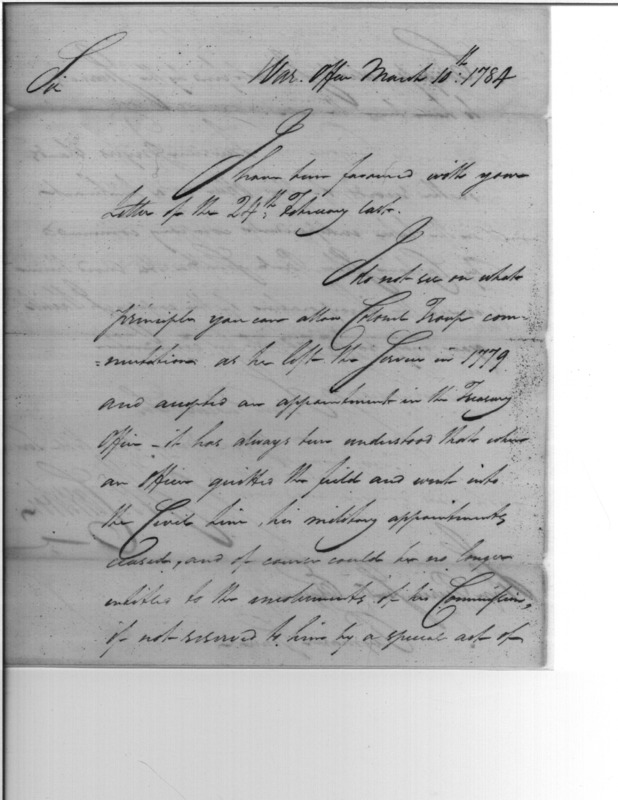 Sir
War Office March 10th: 1784
I have been favored with your
Letter of the 24th: February last.
I do not see on what
principles you can allow Colonel Troup com-
=mutation as he left the Service in 1779
and accepted an appointment in the Treasury
Office – it has always been understood that when
an Officer quitted the field and went into
the Civil line, his military appointments
ceased, and of course could be no longer
entitled to the emoluments of his Commission,
if not reserved to him by a special act of